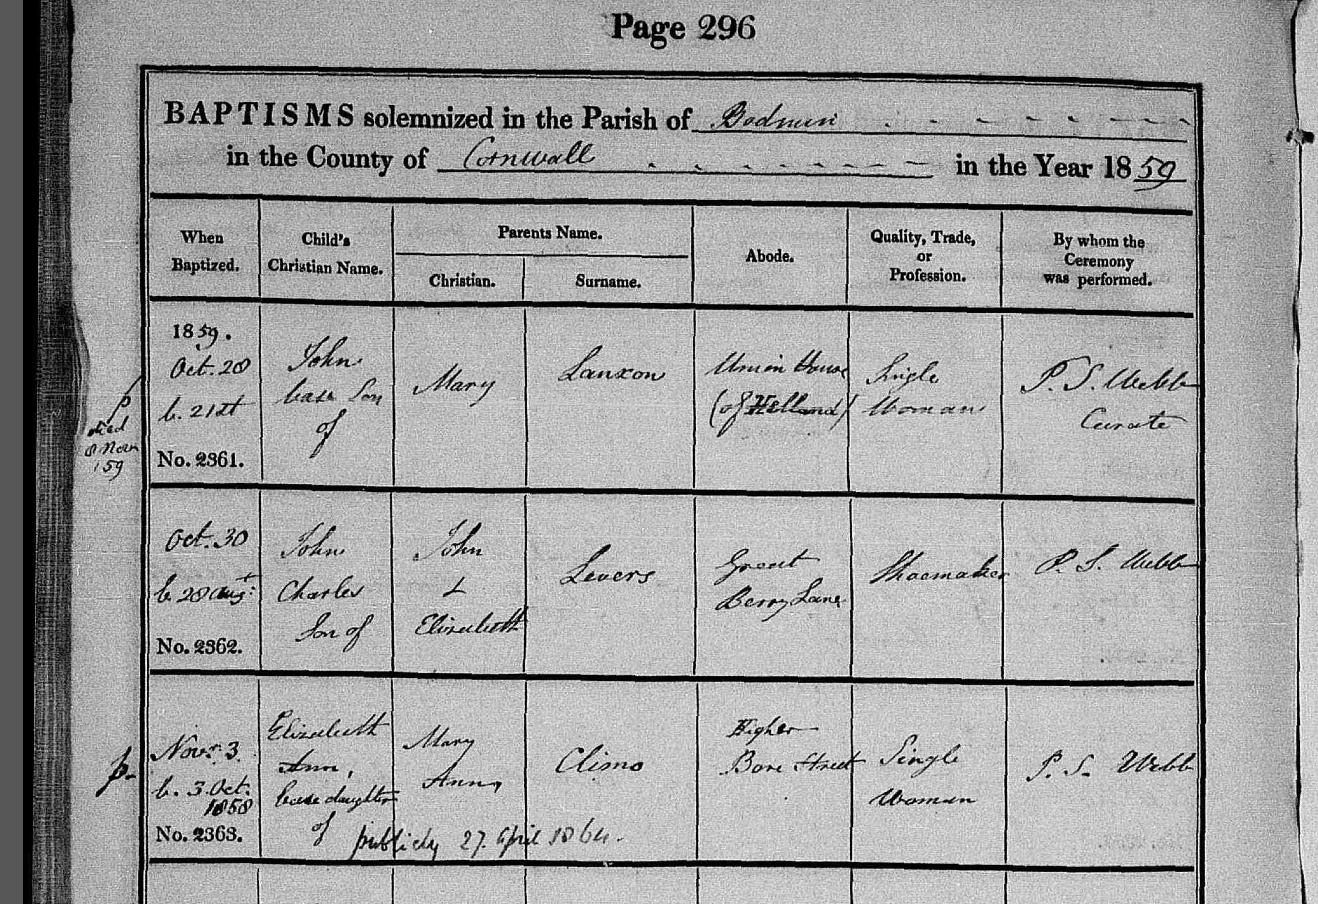 Page 296
BAPTISMS solemnized in the Parish of Bodmin
in the County of Cornwall in the Year 1859
When Baptized.
Child's Christian Name.
Parents Name.
Christian.
Surname.
Abode.
Quality, Trade, or Profession.
By whom the Ceremony was performed.
p
died
8 Nov
159
1859.
Oct. 28
b. 21st
No. 2361.
John
base Son
of
Mary
Lanxon
Union House
(of Helland)
Single
Woman
P. S. Webb
Curate
Oct. 30
b. 28 Augt
No. 2362.
John
Charles
Son of
John
&
Elizabeth
Levers
Great
Berry Lane
Shoemaker
P. S. Webb
p.
Novr. 3
b. 3 Oct.
1858
No. 2363.
Elizabeth
Ann,
base daughter
of
Mary
Ann
Climo
Higher
Bore Street
Single
Woman
P. S. Webb
publicly 27. April 1864.